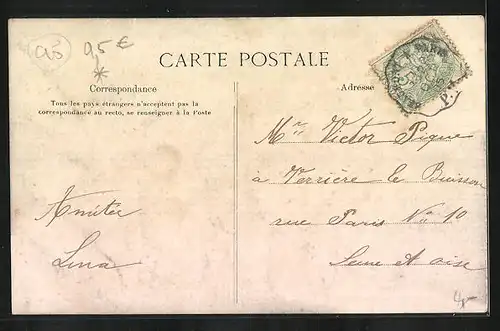 95 €
CARTE POSTALE
Correspondance
Tous les pays étrangers n'acceptent pas la
correspondance au recto, se renseigner à la Poste
Amitée
Lina
Adresse
PARIS
Mr Victor Pique
à Verrière le Buisson
rue Paris No 10
Seine et oise